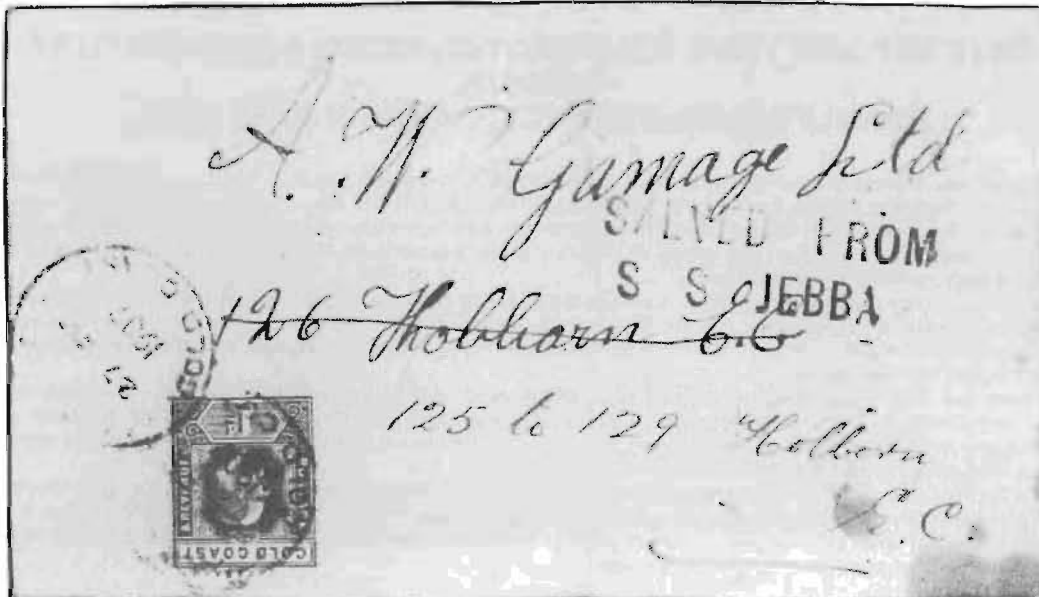 A. W. Gamage Ltd
SALVED FROM
S S JEBBA
126 Thobhorn E.C
125 to 129 Holborn
E.C.
GOLD COAST